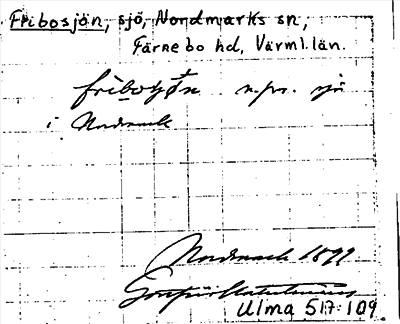 Fribosjön, sjö, Nordmarks sn,
Färnebo hd, Värml. län.
n. pr. sjö
i Nordmark
Nordmark 1899
Ulma 517:109